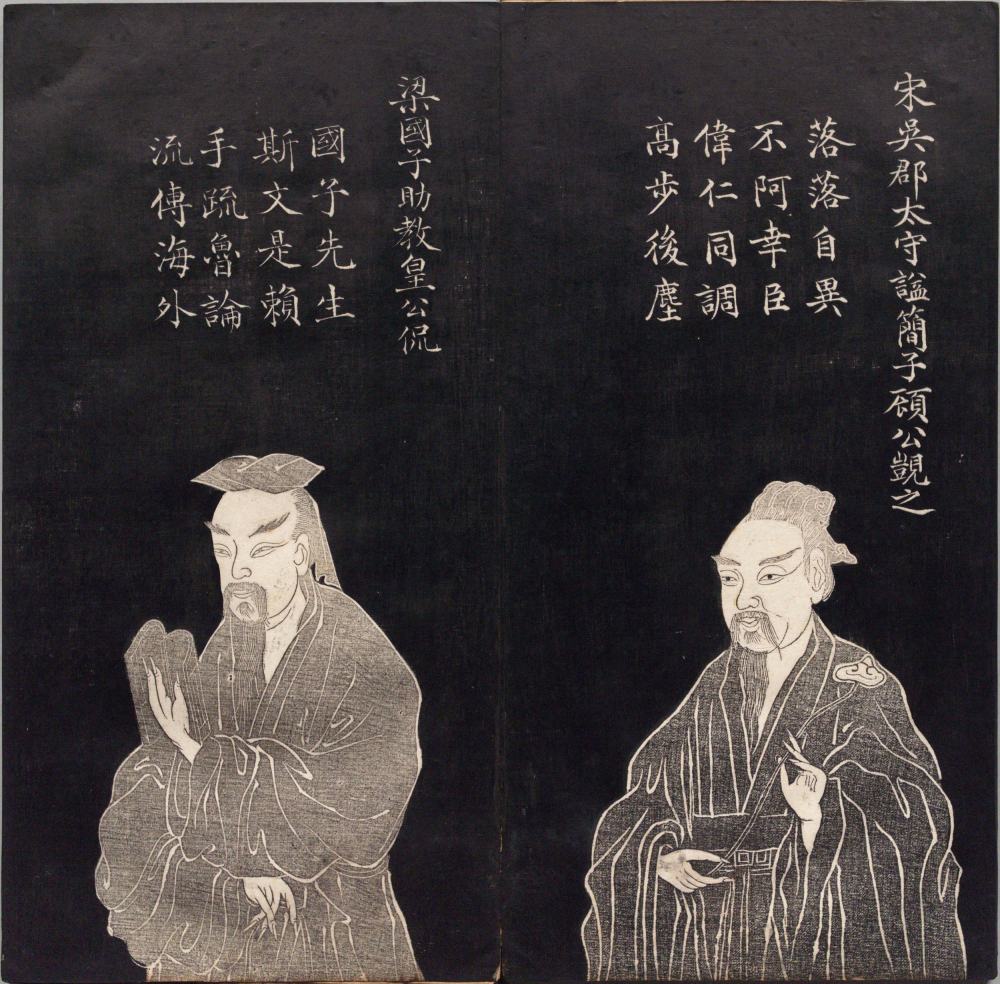 宋吳郡太守謚簡子顧公覬之
落落自異
不阿幸臣
偉仁同調
高步後塵
梁國子助教皇公侃
國子先生
斯文是賴
手疏魯論
流傳海外